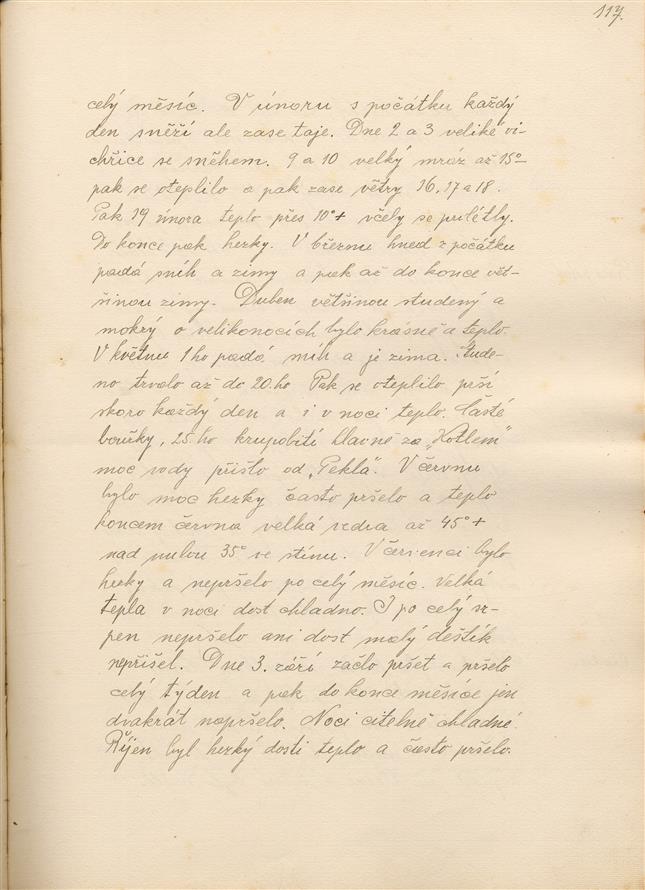 117.
celý měsíc. V únoru s počátku každý
den sněží ale zase taje. Dne 2 a 3 veliké vi-
chřice se sněhem. 9 a 10 velký mráz až 15°-
pak se oteplilo a pak zase větry 16, 17 a 18.
Pak 19 února teplo přes 10°+ včely se prolétly.
Do konce pak hezky. V březnu hned z počátku
padá sníh a zimy a pak až do konce vět-
šinou zimy. Duben většinou studený a
mokrý o velikonocích bylo krásně a teplo.
V květnu 1ho padá sníh a je zima. Stude-
no trvalo až do 20.ho Pak se oteplilo prší
skoro každý den a i v noci teplo. Časté
bouřky, 25.ho krupobití hlavně za „Kotlem"
moc vody přišlo od „Pekla". V červnu
bylo moc hezky často pršelo a teplo
koncem června velká vedra až 45°+
nad nulou 35° ve stínu. V červenci bylo
hezky a nepršelo po celý měsíc. Velká
tepla v noci dost chladno. I po celý sr-
pen nepršelo ani dost malý deštík
nepřišel. Dne 3. září začlo pršet a pršelo
celý týden a pak do konce měsíce jen
dvakrát napršelo. Noci citelně chladné
Říjen byl hezký dosti teplo a často pršelo.